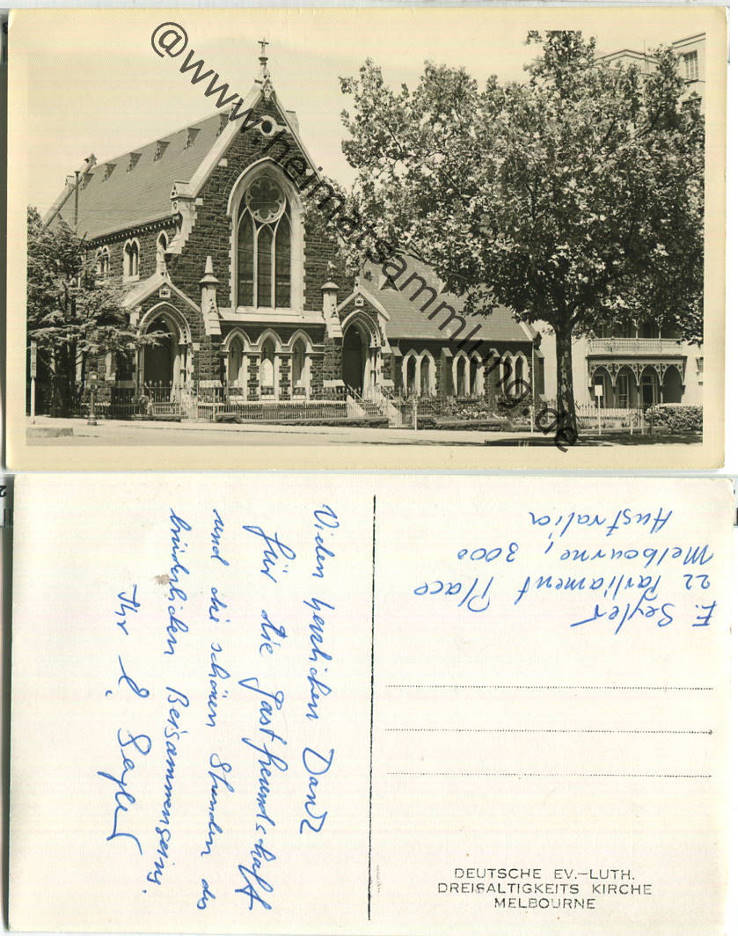 @www.heimatsammlung.de
Vielen herzlichen Dank
für die Gastfreundschaft
und die schönen Stunden des
brüderlichen Beisammenseins.
Ihr E. Seyler
F. Seyler
22 Parliament Place
Melbourne, 3000
Australia
DEUTSCHE EV.–LUTH.
DREIFALTIGKEITS KIRCHE
MELBOURNE